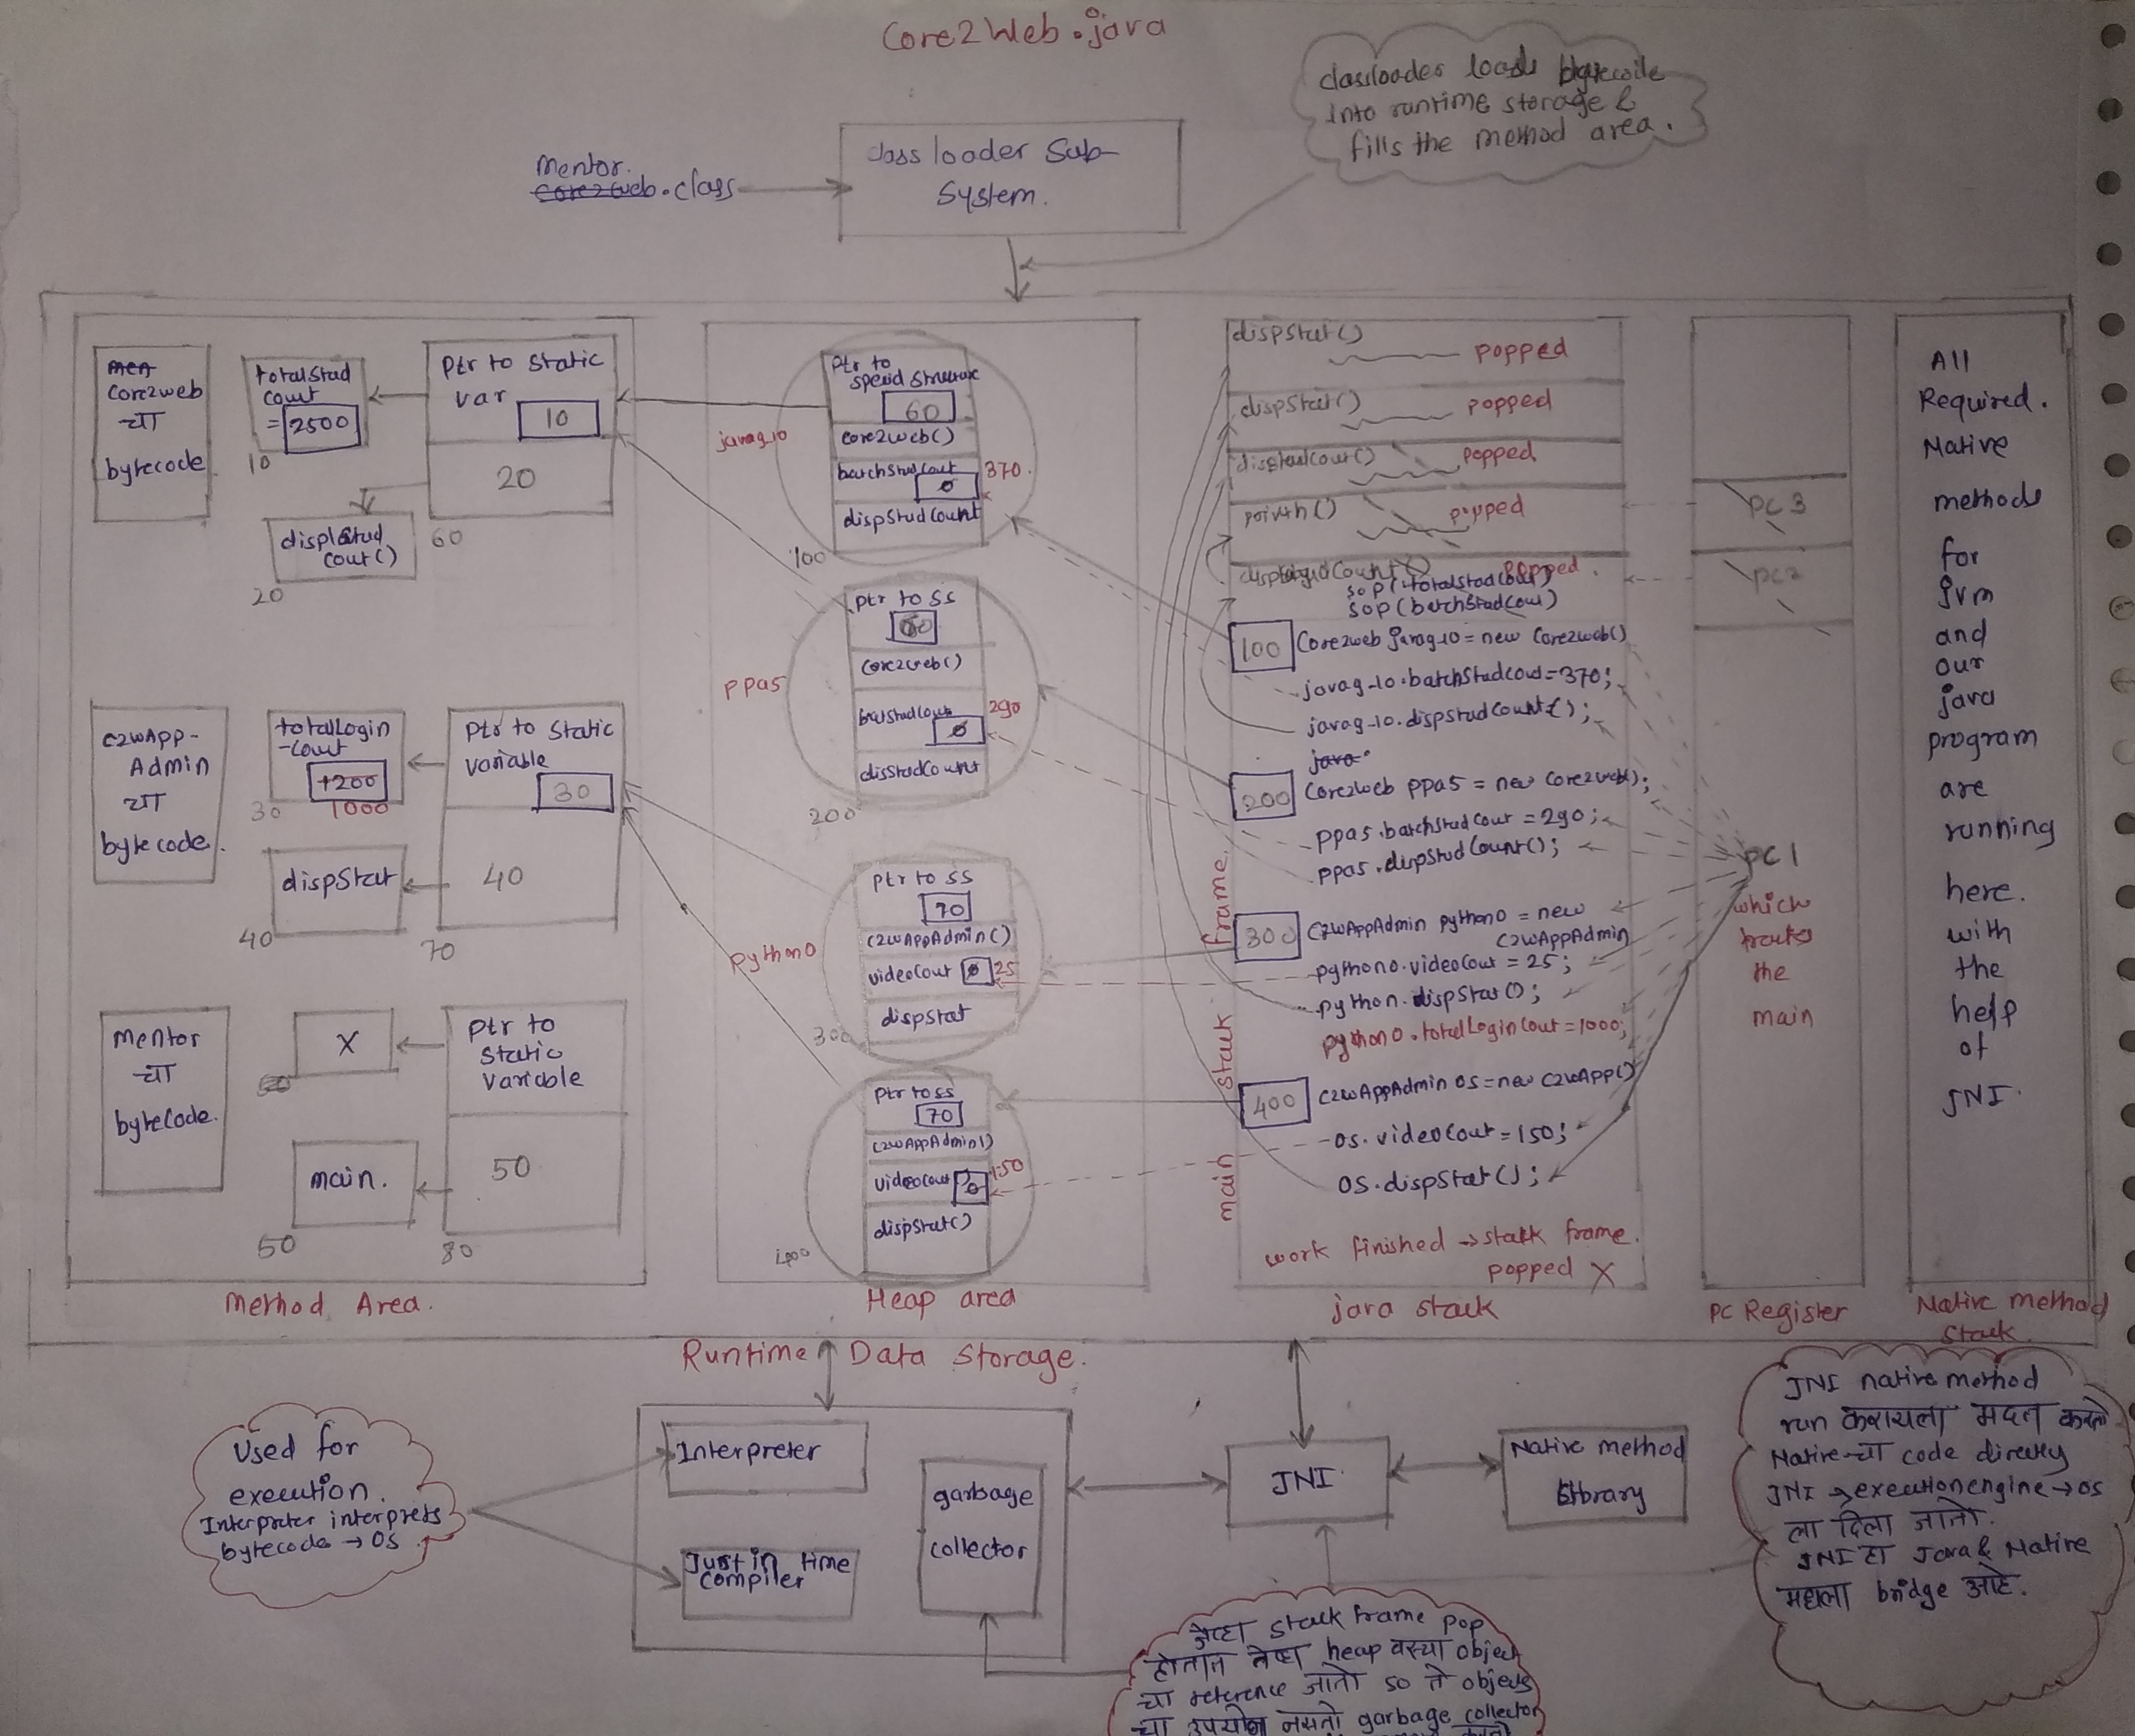 Core2Web.java
classloader loads bytecode
into runtime storage &
fills the method area.
Mentor.
Core2Web.class
class loader Sub-
System.
core2web
चा
bytecode
totalStud
Count
= 2500
10
Ptr to Static
var 10
20
displStud
Cout()
20
60
c2wApp-
Admin
चा
bytecode.
totalLogin
-Cout
+200
1000
30
Ptr to Static
variable
30
40
dispStat
40
70
Mentor
चा
bytecode.
X
50
Ptr to
Static
Variable
50
main.
50
80
Method Area.
javag_10
Ptr to
60
core2web()
batchStudCout
0 370
dispStudCount
100
ppa5
Ptr to SS
60
Core2web()
290
0
disStudCount
200
pythono
Ptr to SS
70
C2wAppAdmin()
videoCout 0 25
dispStat
300
Ptr to SS
70
C2wAppAdmin()
videoCout 0 150
dispStat()
400
Heap area
dispStat()
popped
dispStat()
popped
popped
println()
popped
popped.
sop(totalStudCout)
sop(batchStudCout)
100 Core2web javag_10 = new Core2web()
javag_10.batchStudCout=370;
javag_10.dispStudCount();
java.
200 Core2Web ppa5 = new Core2web();
ppa5.batchStudCout = 290;
ppa5.dispStudCount();
300 C2wAppAdmin pythono = new
C2wAppAdmin
pythono.videoCout = 25;
python.dispStat();
pythono.totalLoginCout=1000;
400 C2wAppAdmin os=new C2wApp()
os.videoCout=150;
os.dispStat();
main stack frame.
work finished → stack frame.
popped X
java stack
PC3
PC2
PC1
which
tracks
the
main
PC Register
All
Required.
Native
methods
for
jvm
and
our
java
program
are
running
here.
with
the
help
of
JNI.
Native method
Stack.
Runtime Data Storage.
Used for
execution.
Interpreter interprets
bytecode → OS.
Interpreter
Just in time
compiler
garbage
collector
JNI.
Native method
library
JNI native method
run करायला मदत करतो
Native चा code directly
JNI → execution engine → OS
ला दिला जातो.
JNI हा Java & Native
मधला bridge आहे.
जेव्हा stack frame pop
होतात तेव्हा heap वरच्या object
चा reference जातो so ते objects
चा उपयोग नसतो garbage collector